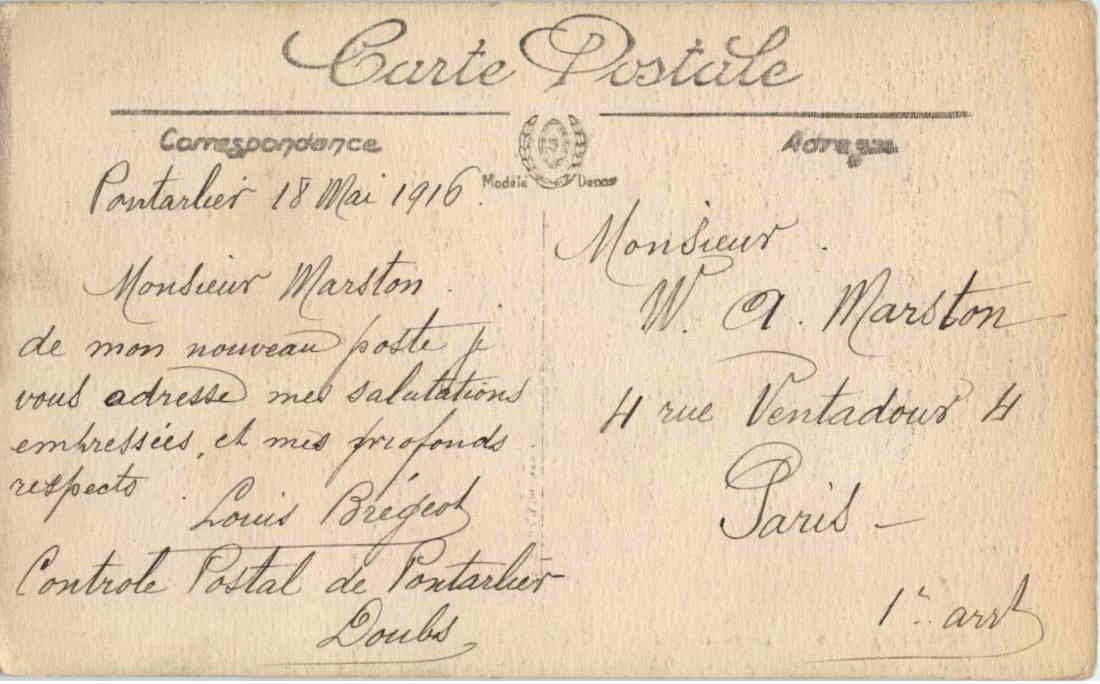 Carte Postale
Correspondance
Adresse
Modèle
Pontarlier 18 Mai 1916.
Monsieur Marston.
de mon nouveau poste je
vous adresse mes salutations
empressées, et mes profonds
respects.
Louis Brégeot
Controle Postal de Pontarlier
Doubs
Monsieur.
W. A. Marston
4 rue Ventadour 4
Paris –
1r. arrt